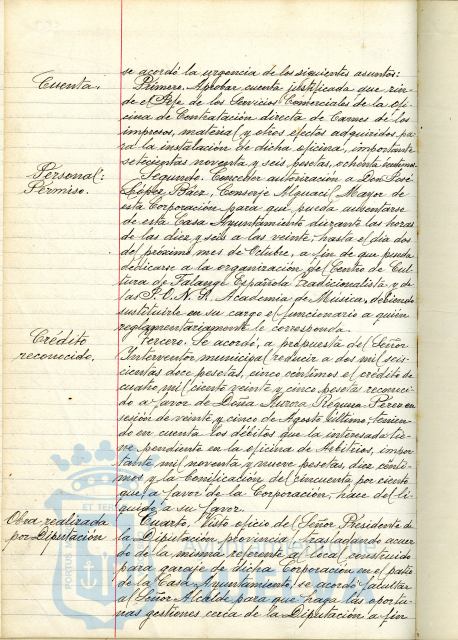 se acordó la urgencia de los siguientes asuntos:
Cuenta.
Primero. Aprobar cuenta justificada que rin-
de el Jefe de los Servicios Comerciales de la ofi-
cina de Contratación directa de Carnes de los
impresos, material y otros efectos adquiridos pa-
ra la instalación de dicha oficina, importante
setecientas noventa y seis pesetas, ochenta céntimos.
Personal:
Permiso.
Segundo. Conceder autorización a Don José
López Báez, Conserje Alguacil Mayor de
esta Corporación para que pueda ausentarse
de esta Casa Ayuntamiento durante las horas
de las diez y seis a las veinte, hasta el día dos
del próximo mes de Octubre, a fin de que pueda
dedicarse a la organización del Centro de Cul-
tura de Falange Española Tradicionalista y de
las J.O.N.S. Academia de Música, debiendo
sustituirle en su cargo el funcionario a quien
reglamentariamente le corresponda.
Crédito
reconocido.
Tercero. Se acordó, a propuesta del Señor
Interventor municipal reducir a dos mil seis-
cientas doce pesetas, cinco céntimos el crédito de
cuatro mil ciento veinte y cinco pesetas reconoci-
do a favor de Doña Aurora Requena Pérez en
sesión de veinte y cinco de Agosto último, tenien-
do en cuenta los débitos que la interesada tie-
ne pendiente en la oficina de Arbitrios, impor-
tante mil noventa y nueve pesetas, diez cénti-
mos y la bonificación del cincuenta por ciento
que, a favor de la Corporación, hace del lí-
quido a su favor.
Obra realizada
por Diputación
Cuarto. Visto oficio del Señor Presidente de
la Diputación provincial, trasladando acuer-
do de la misma referente a local construido
para garaje de dicha Corporación en el patio
de la Casa Ayuntamiento, se acordó facultar
al Señor Alcalde para que haga las oportu-
nas gestiones cerca de la Diputación a fin